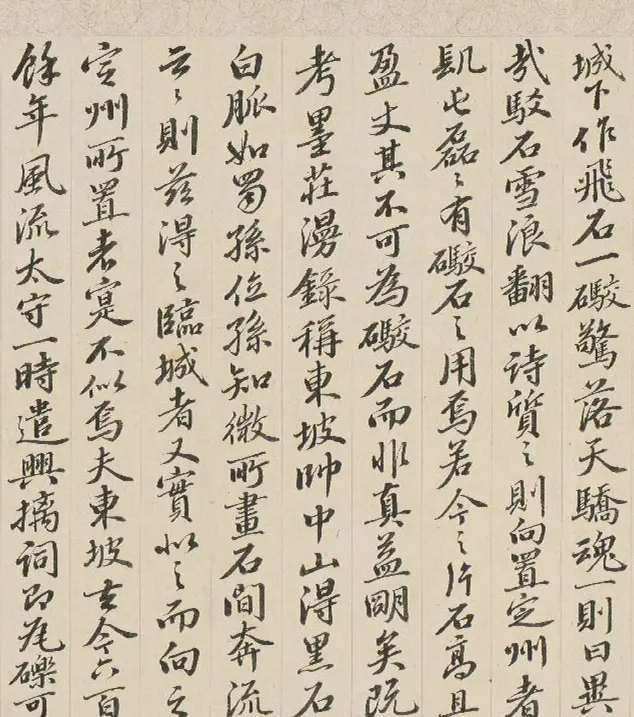 城下作飛石一礮驚落天驕魂一則曰異
哉駮石雪浪翻以詩質之則向置定州者
訊此磊〻有礮石之用焉若今之片石高且
盈丈其不可為礮石而非真益明矣既
考墨莊漫錄稱東坡帥中山得黑石
白脈如蜀孫位孫知微所畫石間奔流
云〻則茲得之臨城者又實似之而向之
定州所置者寔不似焉夫東坡去今六百
餘年風流太守一時遣興摛詞即瓦礫可